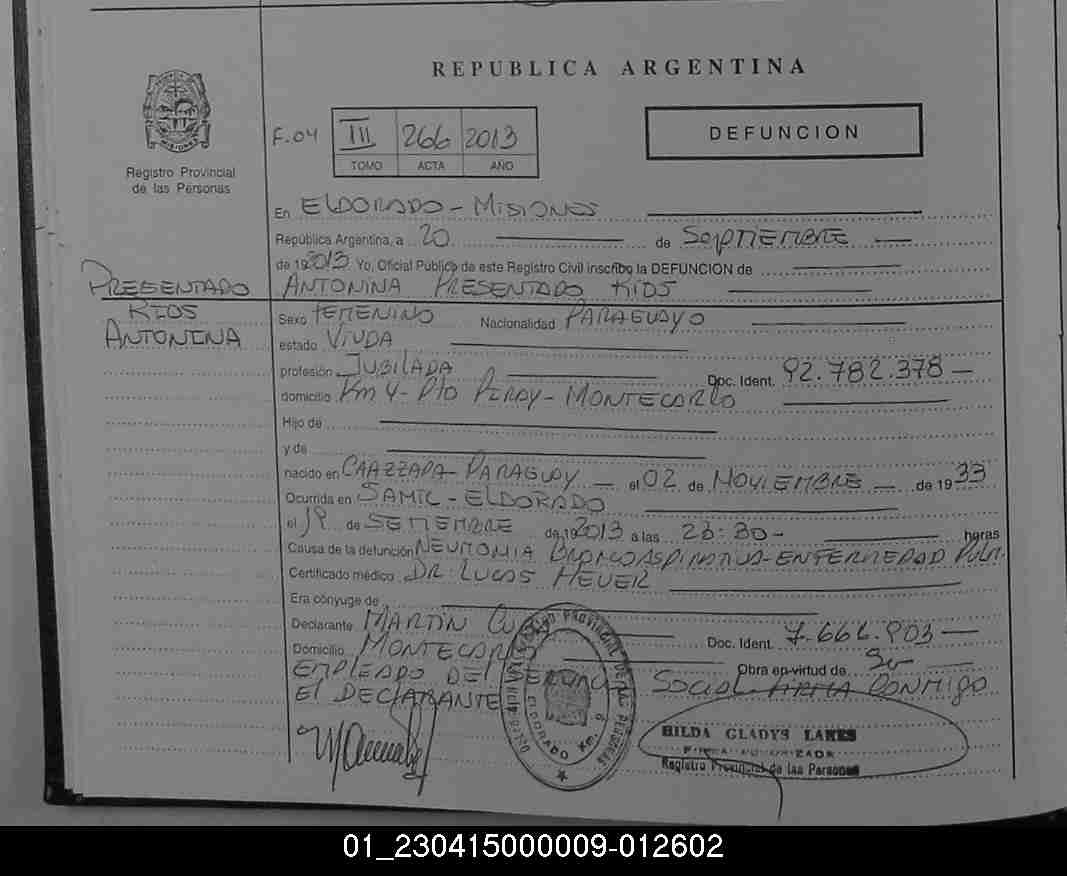 REPUBLICA ARGENTINA
F.04 III 266 2013
TOMO ACTA AÑO
DEFUNCION
Registro Provincial
de las Personas
En ELDORADO - MISIONES
República Argentina, a 20 de SEPTIEMBRE
de 192013 Yo, Oficial Público de este Registro Civil inscribo la DEFUNCION de
PRESENTADO ANTONINA PRESENTADO RIOS
RIOS
ANTONINA
Sexo FEMENINO Nacionalidad PARAGUAYO
estado VIUDA
profesión JUBILADA Doc. Ident. 92.782.378 —
domicilio Km 4 - Pto PIRAY - MONTECARLO
Hijo de
y de
nacido en CAAZZAPA - PARAGUAY — el 02 de NOVIEMBRE — de 1933
Ocurrida en SAMIC - ELDORADO
el 19 de SETIEMBRE de 192013 a las 23:30 - horas
Causa de la defunción NEUMONIA BRONCOASPIRATIVA - ENFERMEDAD PULM.
Certificado médico DR: LUCAS HEUER
Era cónyuge de
Declarante MARTIN Doc. Ident. 7.666.903 —
Domicilio MONTECARLO Obra en virtud de Ser
EMPLEADO DEL SERVICIO SOCIAL FIRMA CONMIGO
El DECLARANTE
REGISTRO PROVINCIAL DE LAS PERSONAS
ELDORADO Km. 9
HILDA GLADYS LANES
FIRMA AUTORIZADA
Registro Provincial de las Personas
01_230415000009-012602